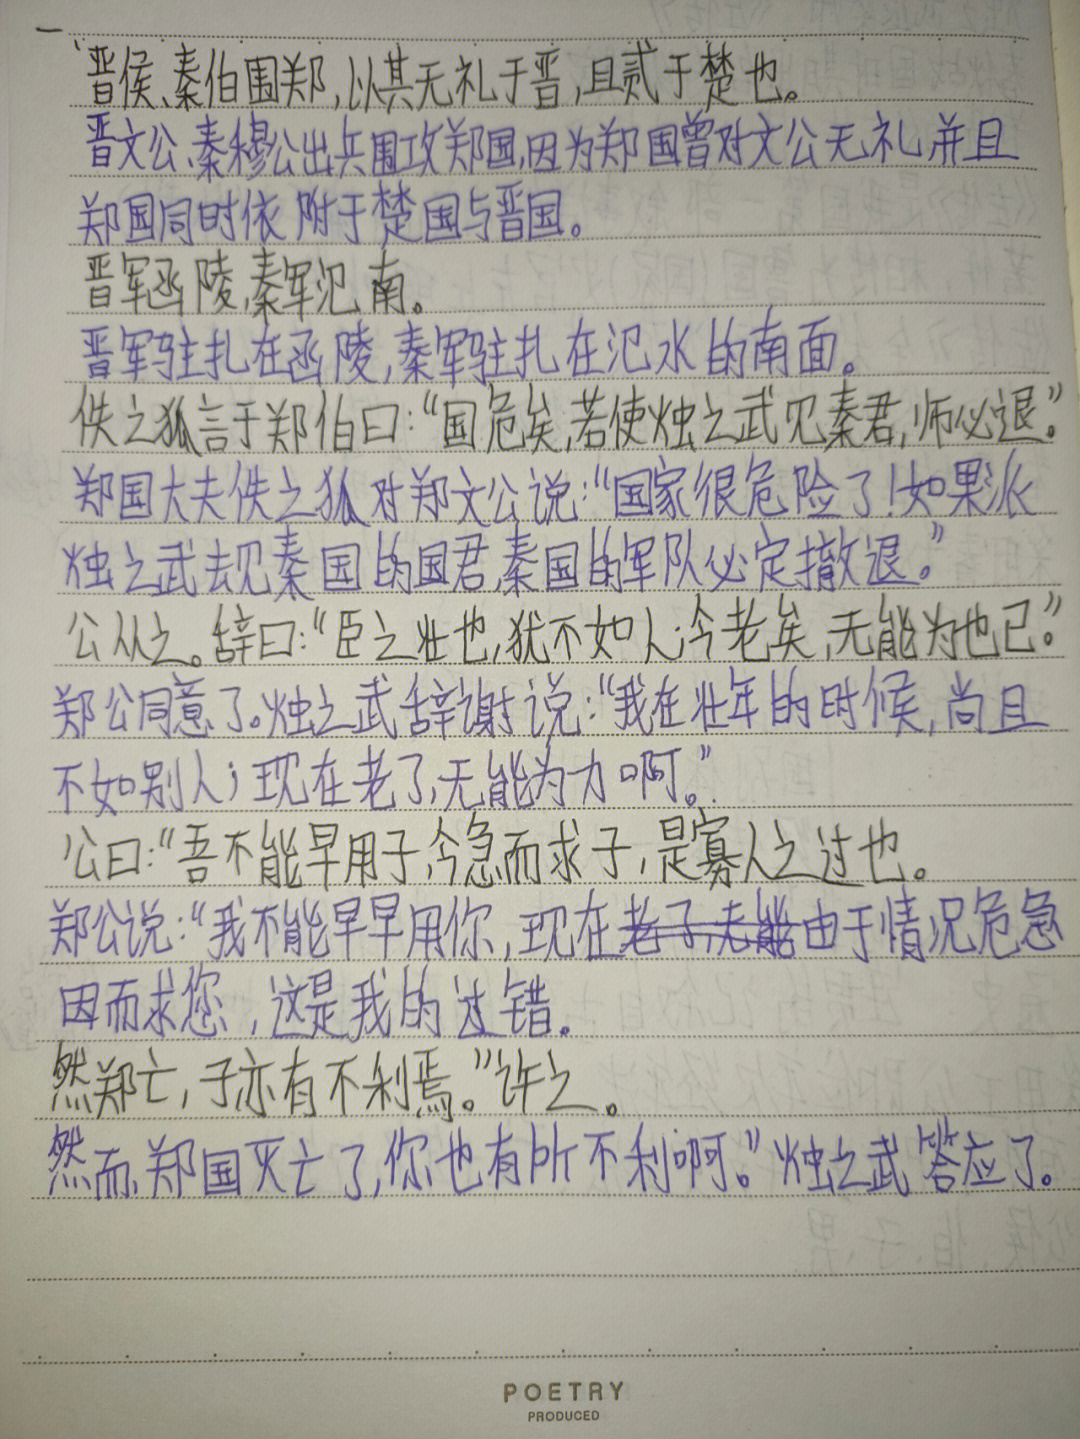 一
晋侯、秦伯围郑,以其无礼于晋,且贰于楚也。
晋文公、秦穆公出兵围攻郑国,因为郑国曾对文公无礼,并且
郑国同时依附于楚国与晋国。
晋军函陵,秦军氾南。
晋军驻扎在函陵,秦军驻扎在氾水的南面。
佚之狐言于郑伯曰:“国危矣,若使烛之武见秦君,师必退。”
郑国大夫佚之狐对郑文公说:“国家很危险了!如果派
烛之武去见秦国的国君,秦国的军队必定撤退。”
公从之。辞曰:“臣之壮也,犹不如人;今老矣,无能为也已。”
郑公同意了。烛之武辞谢说:“我在壮年的时候,尚且
不如别人;现在老了,无能为力啊。”
公曰:“吾不能早用子,今急而求子,是寡人之过也。
郑公说:“我不能早早用你,现在老了,无能由于情况危急
因而求您,这是我的过错。
然郑亡,子亦有不利焉。”许之。
然而郑国灭亡了,你也有所不利啊。”烛之武答应了。
POETRY
PRODUCED